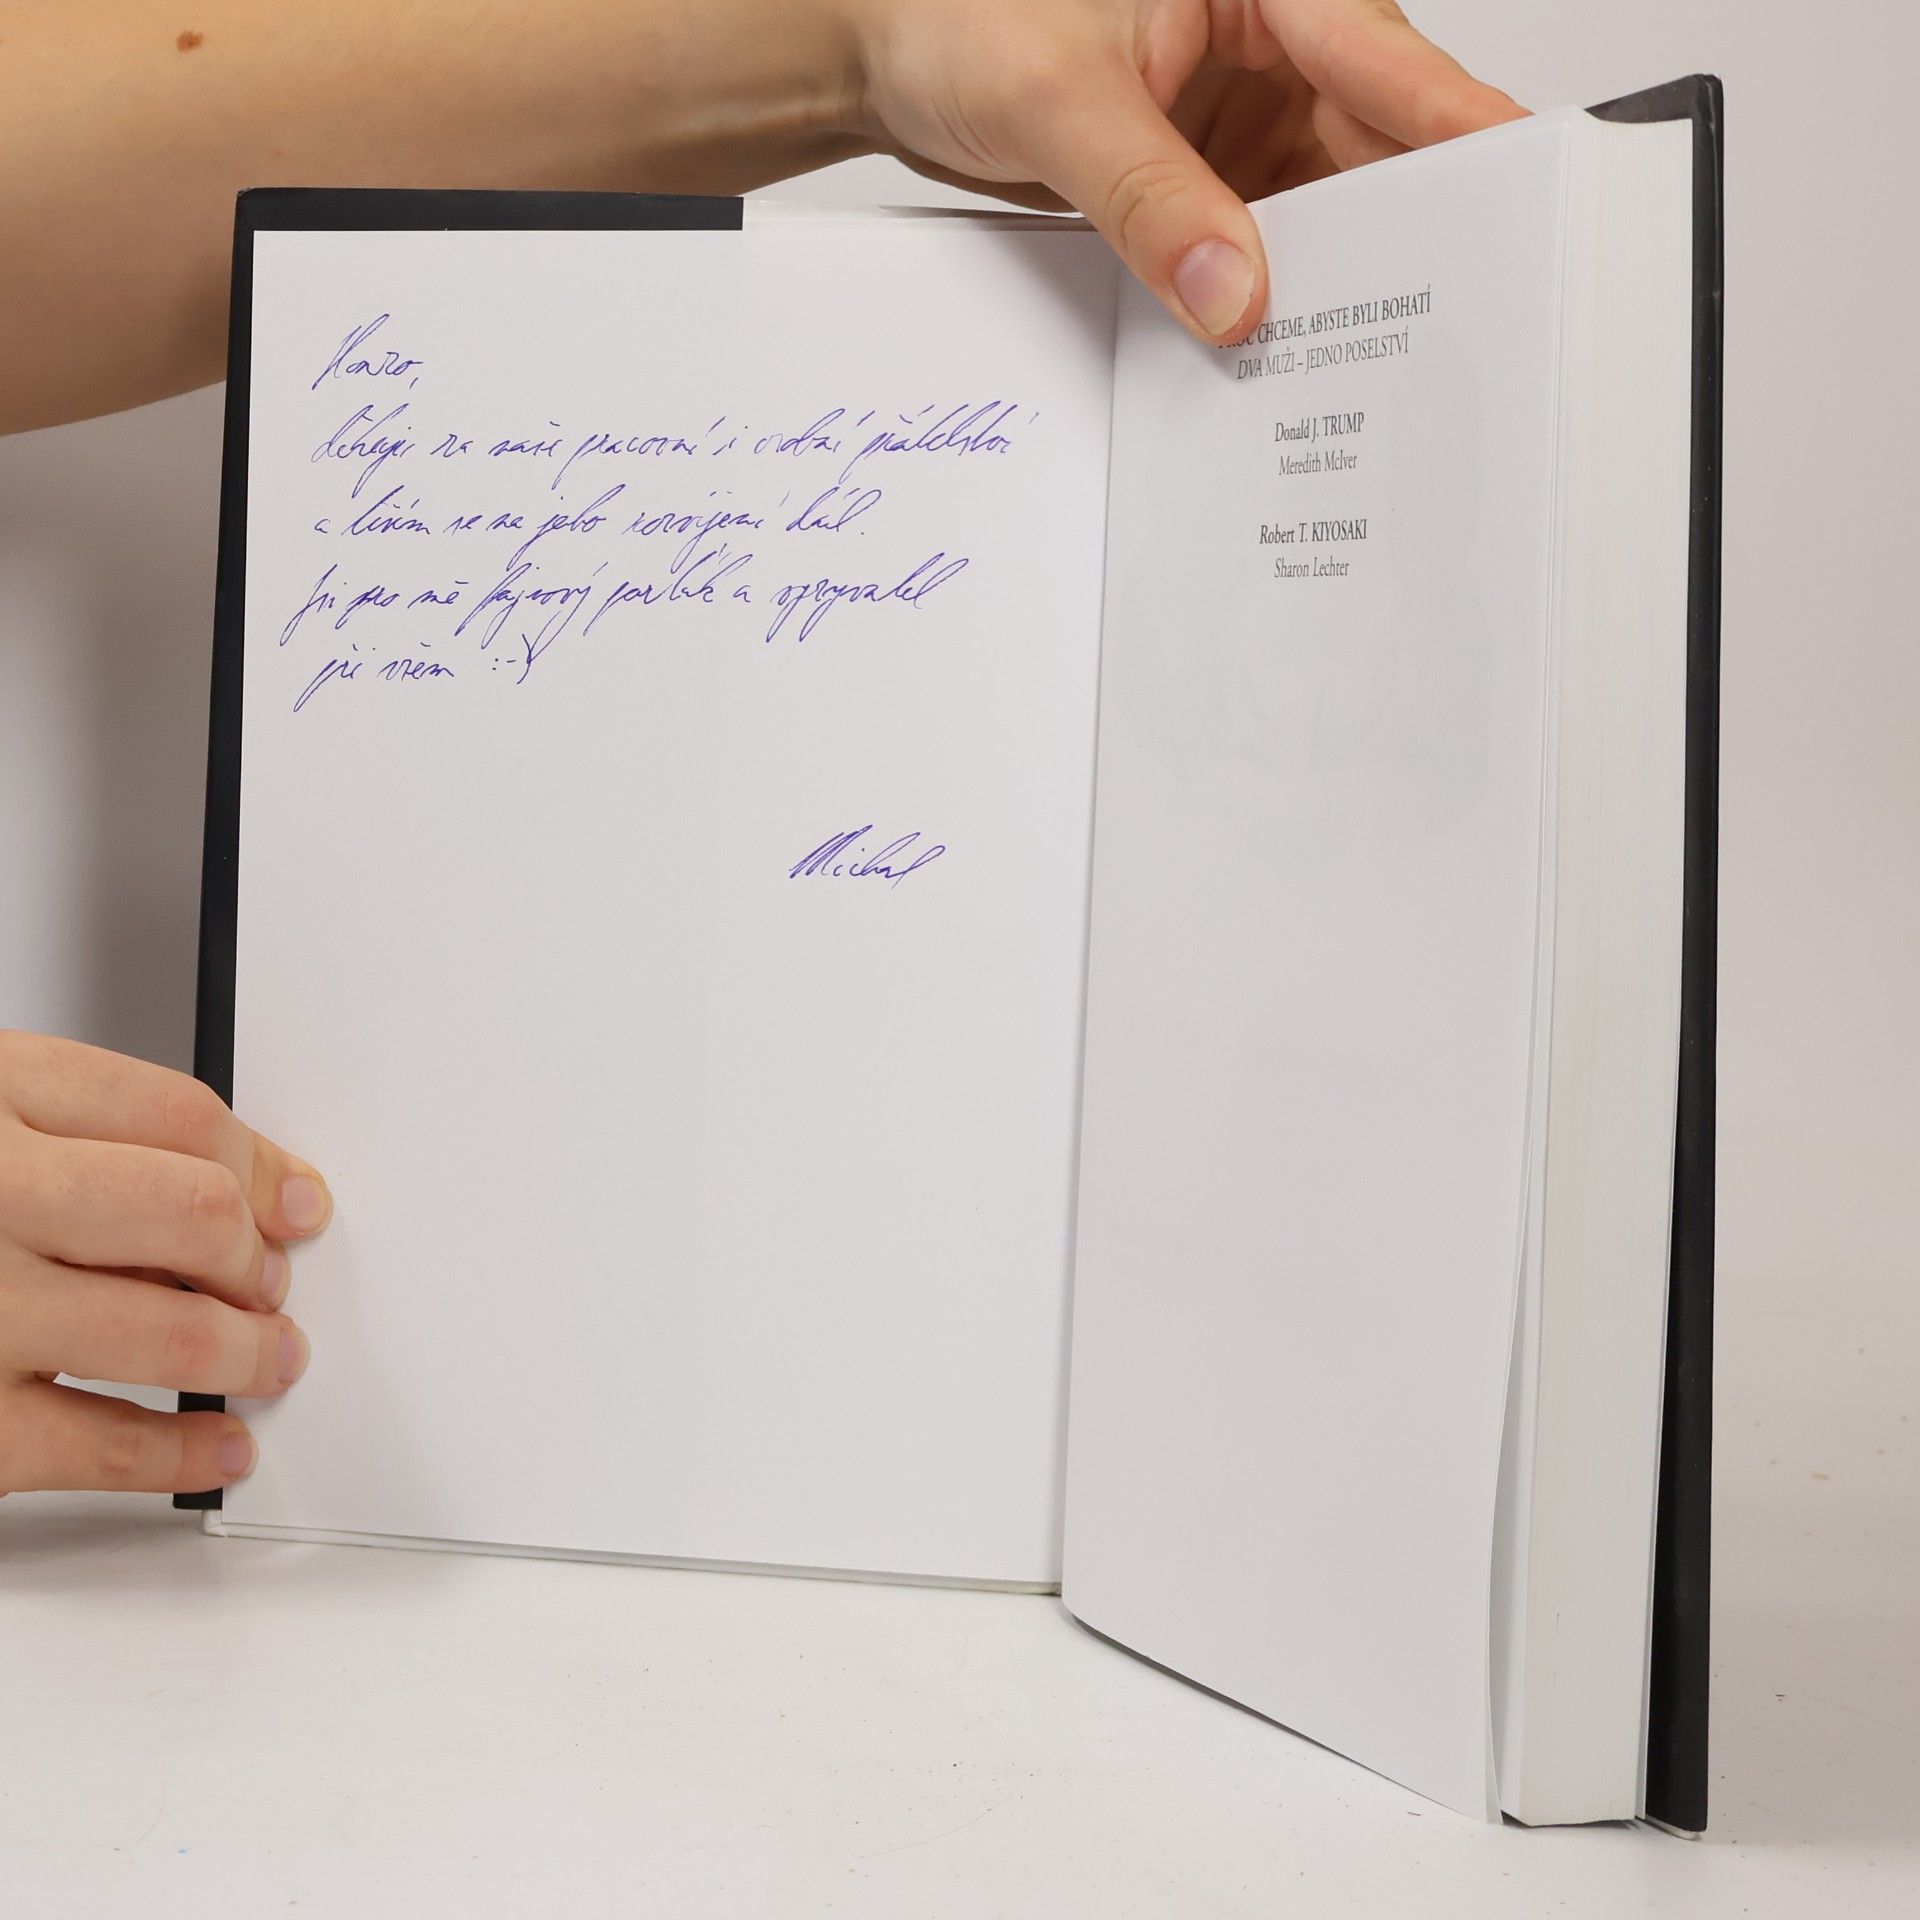 Honzo,
děkuji za naše pracovní i osobní přátelství
a těším se na jeho rozvíjení dál.
Jsi pro mě fajnový parťák a
při všem :-)
Michal
CHCEME, ABYSTE BYLI BOHATÍ
DVA MUŽI – JEDNO POSELSTVÍ
Donald J. TRUMP
Meredith McIver
Robert T. KIYOSAKI
Sharon Lechter